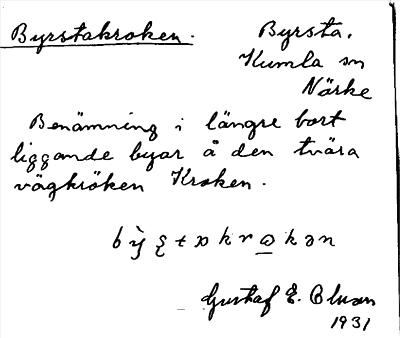 Byrstakroken.
Byrsta.
Kumla sn
Närke
Benämning i längre bort
liggande byar å den tvära
vägkröken Kroken.
Gustaf E. Bluan
1931